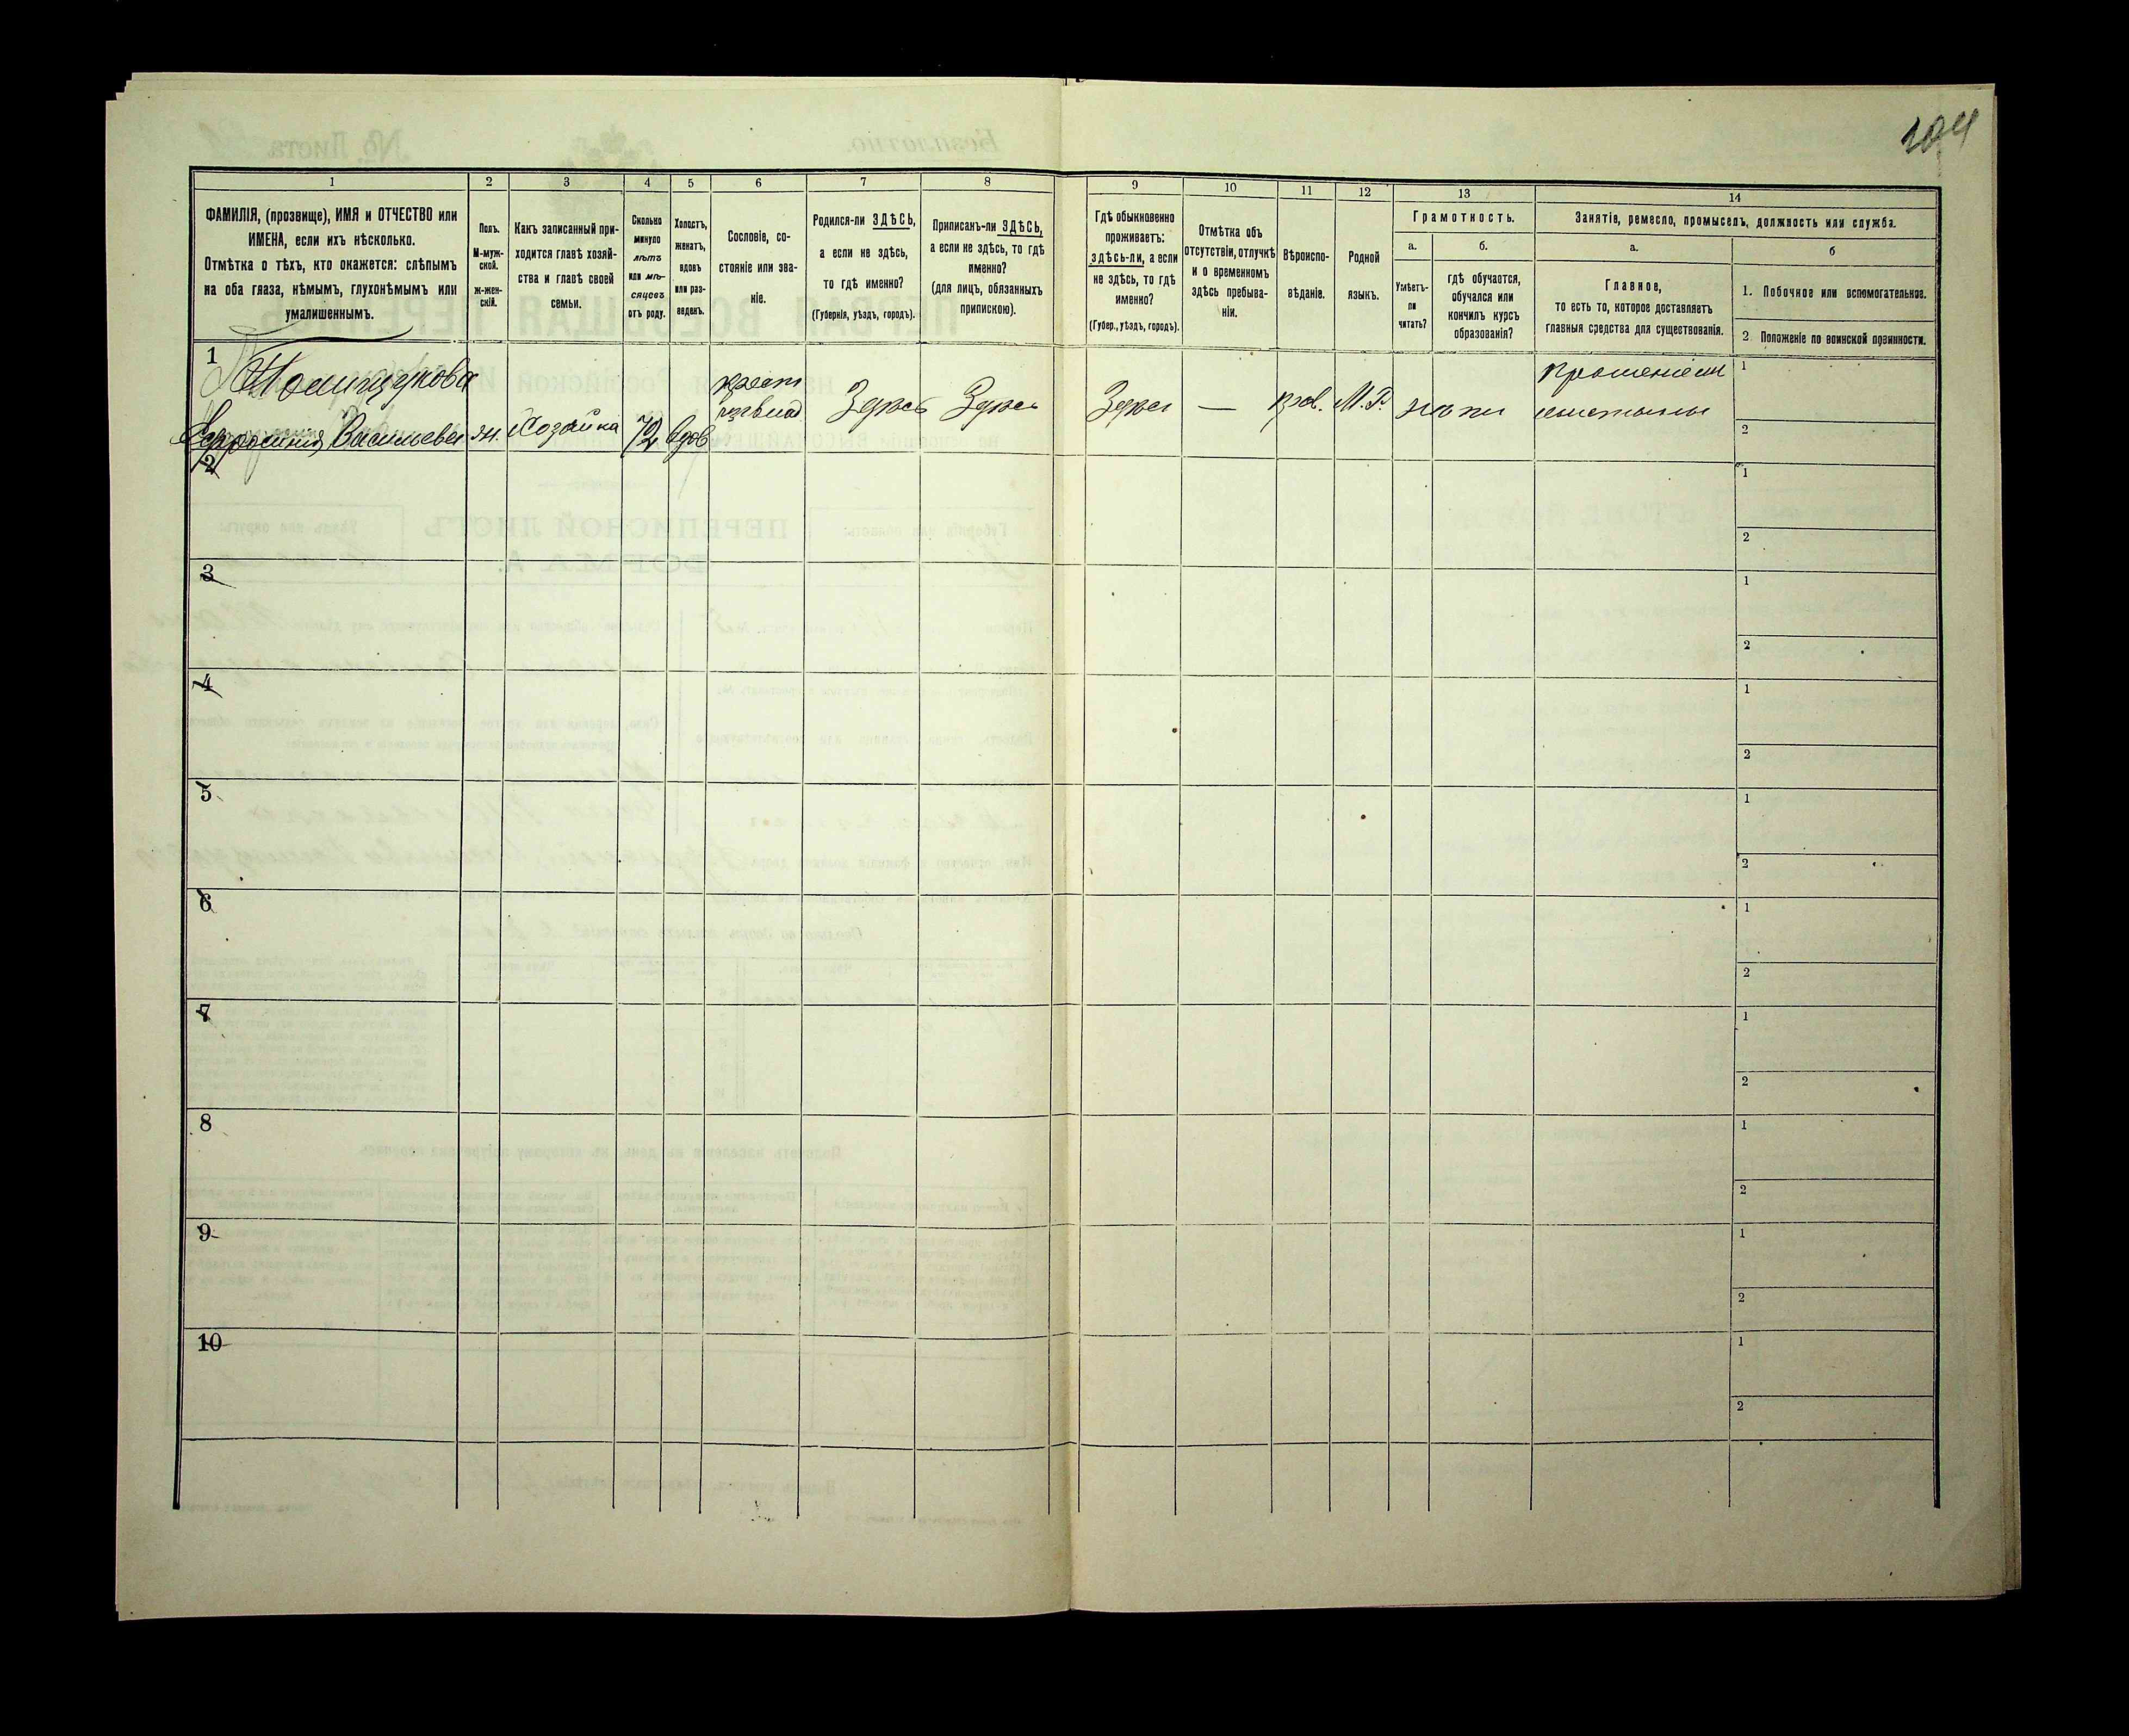 104
1
2
3
4
5
6
7
8
9
10
11
12
13
14
ФАМИЛІЯ, (прозвище), ИМЯ и ОТЧЕСТВО или
ИМЕНА, если ихъ нѣсколько.
Отмѣтка о тѣхъ, кто окажется: слѣпымъ
на оба глаза, нѣмымъ, глухонѣмымъ или
умалишеннымъ.
Полъ.
М-муж-
ской.
ж-жен-
скій.
Какъ записанный при-
ходится главѣ хозяй-
ства и главѣ своей
семьи.
Сколько
минуло
лѣтъ
или мѣ-
сяцевъ
отъ роду.
Холостъ,
женатъ,
вдовъ
или раз-
веденъ.
Сословіе, со-
стояніе или зва-
ніе.
Родился-ли ЗДѢСЬ,
а если не здѣсь,
то гдѣ именно?
(Губернія, уѣздъ, городъ).
Приписанъ-ли ЗДѢСЬ,
а если не здѣсь, то гдѣ
именно?
(для лицъ, обязанныхъ
припискою).
Гдѣ обыкновенно
проживаетъ:
здѣсь-ли, а если
не здѣсь, то гдѣ
именно?
(Губер., уѣздъ, городъ).
Отмѣтка объ
отсутствіи, отлучкѣ
и о временномъ
здѣсь пребыва-
ніи.
Вѣроиспо-
вѣданіе.
Родной
языкъ.
Грамотность.
а.
Умѣетъ-
ли
читать?
б.
гдѣ обучается,
обучался или
кончилъ курсъ
образованія?
Занятіе, ремесло, промыселъ, должность или служба.
а.
Главное,
то есть то, которое доставляетъ
главныя средства для существованія.
б
1. Побочное или вспомогательное.
2. Положеніе по воинской повинности.
1
Полищукова
Ефросинія Васильева
ж.
Хозяйка
72
вдов
крест
Здѣсь
Здѣсь
Здѣсь
—
прав.
М. Р.
прошеніем
милостыны
1
2
2
1
2
3
1
2
4
1
2
5
1
2
6
1
2
7
1
2
8
1
2
9
1
2
10
1
2